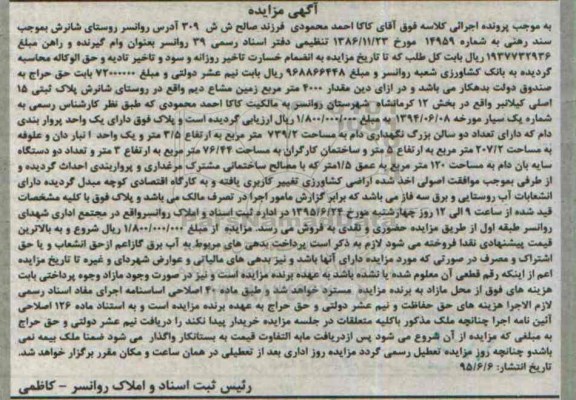 آگهی مزایده
به موجب پرونده اجرائی کلاسه فوق آقای کاکا احمد محمودی فرزند صالح ش ش ۳۰۹ آدرس روانسر روستای شانرش بموجب
سند رهنی به شماره ۱۴۹۵۹ مورخ ۱۳۸۶/۱۱/۲۳ تنظیمی دفتر اسناد رسمی ۳۹ روانسر بعنوان وام گیرنده و راهن مبلغ
۱۹۳۷۷۳۲۹۳۶ ریال بابت کل طلب که تا تاریخ مزایده به انضمام خسارت تاخیر روزانه و سود و تاخیر تادیه و حق الوکاله محاسبه
گردیده به بانک کشاورزی شعبه روانسر و مبلغ ۹۶۸۸۶۶۴۴۸ ریال بابت نیم عشر دولتی و مبلغ ۷۲۰۰۰۰۰۰ بابت حق حراج به
صندوق دولت بدهکار می باشد و در ازای دین مقدار ۴۰۰۰ متر مربع زمین مشاع دیم واقع در روستای شانرش پلاک ثبتی ۱۵
اصلی کیلانبر واقع در بخش ۱۲ کرمانشاه شهرستان روانسر به مالکیت کاکا احمد محمودی که طبق نظر کارشناس رسمی به
شماره یک سیار مورخه ۱۳۹۴/۰۶/۰۸ به مبلغ ۱/۸۰۰/۰۰۰/۰۰۰ ریال ارزیابی گردیده است و پلاک فوق دارای یک واحد پروار بندی
دام که دارای تعداد دو سالن بزرگ نگهداری دام به مساحت ۷۳۹/۲ متر مربع به ارتفاع ۳/۵ متر و یک واحد انبار دان و علوفه
به مساحت ۲۰۷/۲ متر مربع به ارتفاع ۵ متر و ساختمان کارگران به مساحت ۷۶/۴۴ متر مربع به ارتفاع ۳ متر و تعداد دو دستگاه
سایه بان دام به مساحت ۱۲۰ متر مربع به عمق ۱/۵متر که با مصالح ساختمانی مشترک مرغداری و پرواربندی احداث گردیده و
از طرفی بموجب موافقت اصولی اخذ شده اراضی کشاورزی تغییر کاربری یافته و به کارگاه اقتصادی کوچه مبدل گردیده دارای
انشعابات آب روستایی و برق سه فاز می باشد که برابر گزارش مامور اجرا در تصرف مالک می باشد و پلاک فوق با کلیه مشخصات
قید شده از ساعت ۹ الی ۱۲ روز چهارشنبه مورخ ۱۳۹۵/۶/۲۴ در اداره ثبت اسناد و املاک روانسرواقع در مجتمع اداری شهدای
روانسر طبقه اول از طریق مزایده حضوری و نقدی به فروش می رسد. مزایده از مبلغ ۱/۸۰۰/۰۰۰/۰۰۰ ریال شروع و به بالاترین
قیمت پیشنهادی نقدا فروخته می شود لازم به ذکر است پرداخت بدهی های مربوط به آب برق گازاعم ازحق انشعاب و یا حق
اشتراک و مصرف در صورتی که مورد مزایده دارای آنها باشد و نیز بدهی های مالیاتی و عوارض شهرداری و غیره تا تاریخ مزایده
اعم از اینکه رقم قطعی آن معلوم شده یا نشده باشد به عهده برنده مزایده است و نیز در صورت وجود مازاد وجوه پرداختی بابت
هزینه های فوق از محل مازاد به برنده مزایده مسترد خواهد شد و طبق ماده ۴۰ اصلاحی اساسنامه اجرای مفاد اسناد رسمی
لازم الاجرا هزینه های حق حفاظت و نیم عشر دولتی و حق حراج به عهده برنده مزایده است و به استناد ماده ۱۲۶ اصلاحی
آئین نامه اجرا چنانچه ملک مذکور باکلیه متعلقات در جلسه مزایده خریدار پیدا نکند را دریافت نیم عشر دولتی و حق حراج
به مبلغی که مزایده از آن شروع می شود پس ازدریافت مابه التفاوت قیمت به بستانکار واگذار می شود ضمنا ملک بیمه نمی
باشدو چنانچه روز مزایده تعطیل رسمی گردد مزایده روز اداری بعد از تعطیلی در همان ساعت و مکان مقرر برگزار خواهد شد.
تاریخ انتشار: ۹۵/۶/۶
رئیس ثبت اسناد و املاک روانسر - کاظمی